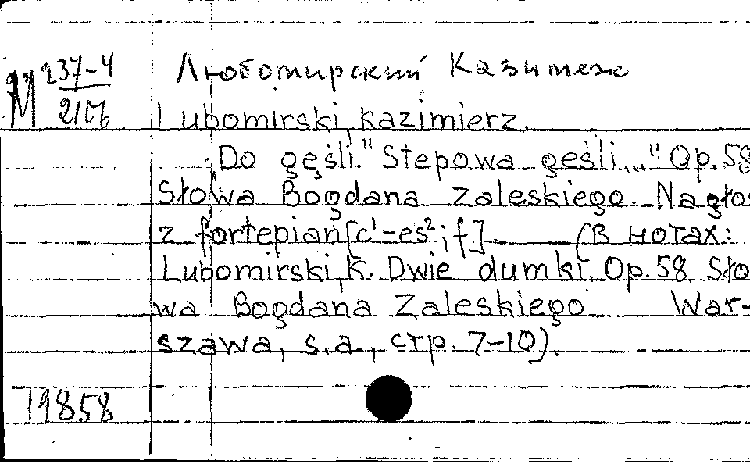 М 237-4
Любомирский Казимеж
Lubomirski, Kazimierz
Do gęśli. "Stepowa gęśli..." Op. 58
Słowa Bogdana Zaleskiego. Na gło-
z fortepian [c¹-es²; f] (в нотах:
Lubomirski, K. Dwie dumki. Op. 58 Sło-
wa Bogdana Zaleskiego War-
szawa, s.a., стр. 7-10).
19858